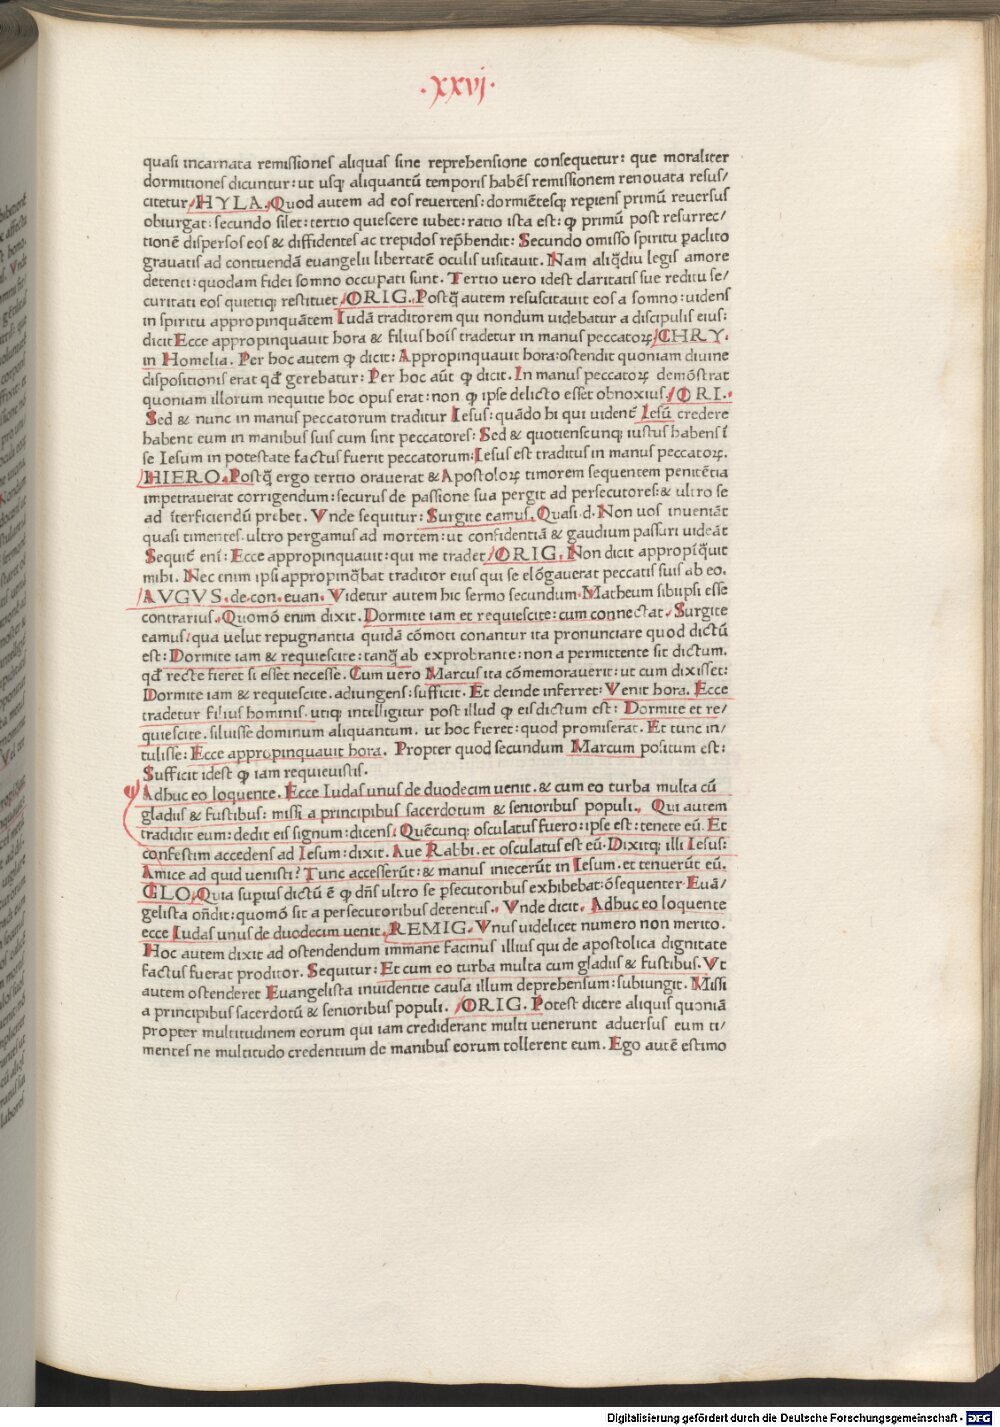 .xxvj.
quasi incarnata remissiones aliquas sine reprehensione consequetur: que moraliter
dormitiones dicuntur: ut usq; aliquantū temporis habēs remissionem renouata resus/
citetur HYLA. Quod autem ad eos reuertens: dormiētesq; reperiens primū reuersus
obiurgat: secundo silet: tertio quiescere iubet: ratio ista est: ꝙ primū post resurrec/
tionē dispersos eos & diffidentes ac trepidos rep̄hendit: Secundo omisso spiritu ꝑaclito
grauatis ad contuendā euangelii libertatē oculis uisitauit. Nam aliq̄diu legis amore
detenti: quodam fidei somno occupati sunt. Tertio uero idest claritatis sue reditu se/
curitati eos quietiq; restituet ORIG. Postq̄ autem resuscitauit eos a somno: uidens
in spiritu appropinquātem Iudā traditorem qui nondum uidebatur a discipulis eius:
dicit Ecce appropinquauit hora & filius hoīs tradetur in manus peccatoꝝ CHRY.
in Homelia. Per hoc autem ꝙ dicit: Appropinquauit hora: ostendit quoniam diuine
dispositionis erat qd̄ gerebatur: Per hoc aūt ꝙ dicit. In manus peccatoꝝ demōstrat
quoniam illorum nequitie hoc opus erat: non ꝙ ipse delicto esset obnoxius ORI.
Sed & nunc in manus peccatorum traditur Iesus: quādo hi qui uidentē Iesū credere
habent eum in manibus suis cum sint peccatores: Sed & quotienscunq; iustus habens ī
se Iesum in potestate factus fuerit peccatorum: Iesus est traditus in manus peccatoꝝ.
HIERO. Postq̄ ergo tertio orauerat & Apostoloꝝ timorem sequentem penitētia
impetrauerat corrigendum: securus de passione sua pergit ad persecutores: & ultro se
ad īterficiendū prebet. Vnde sequitur: Surgite eamus. Quasi d. Non uos inueniāt
quasi timentes. ultro pergamus ad mortem: ut confidentiā & gaudium passuri uideāt
Sequit̄ eni: Ecce appropinquauit: qui me tradet ORIG. Non dicit appropīq̄uit
mihi. Nec enim ipsi appropinq̄bat traditor eius qui se elōgauerat peccatis suis ab eo.
AVGVS. de. con. euan. Videtur autem hic sermo secundum Matheum sibiipsi esse
contrarius. Quomō enim dixit. Dormite iam et requiescite: cum connectat. Surgite
eamus: qua uelut repugnantia quidā cōmoti conantur ita pronunciare quod dictū
est: Dormite iam & requiescite: tanq̄ ab exprobrante: non a permittente sit dictum.
qd̄ recte fieret si esset necesse. Cum uero Marcus ita cōmemorauerit: ut cum dixisset:
Dormite iam & requiescite. adiungens: sufficit. Et deinde inferret: Venit hora. Ecce
tradetur filius hominis. utiq; intelligitur post illud ꝙ eis dictum est: Dormite et re/
quiescite. siluisse dominum aliquantum. ut hoc fieret: quod promiserat. Et tunc in/
tulisse: Ecce appropinquauit hora. Propter quod secundum Marcum positum est:
Sufficit idest ꝙ iam requieuistis.
Adhuc eo loquente. Ecce Iudas unus de duodecim uenit. & cum eo turba multa cū
gladiis & fustibus: missi a principibus sacerdotum & senioribus populi. Qui autem
tradidit eum: dedit eis signum: dicens. Quēcunq; osculatus fuero: ipse est: tenete eū. Et
confestim accedens ad Iesum: dixit. Aue Rabbi. et osculatus est eū. Dixitq; illi Iesus:
Amice ad quid uenisti? Tunc accesserūt: & manus iniecerūt in Iesum. et tenuerūt eū.
GLO. Quia supius dictū ē ꝙ dn̄s ultro se ꝑsecutoribus exhibebat: ōsequenter Euā/
gelista on̄dit: quomō sit a persecutoribus detentus. Vnde dicit. Adhuc eo loquente
ecce Iudas unus de duodecim uenit. REMIG. Vnus uidelicet numero non merito.
Hoc autem dixit ad ostendendum immane facinus illius qui de apostolica dignitate
factus fuerat proditor. Sequitur: Et cum eo turba multa cum gladiis & fustibus. Vt
autem ostenderet Euangelista inuidentie causa illum deprehensum: subiungit. Missi
a principibus sacerdotū & senioribus populi. ORIG. Potest dicere aliquis quoniā
propter multitudinem eorum qui iam crediderant multi uenerunt aduersus eum ti/
mentes ne multitudo credentium de manibus eorum tollerent eum. Ego autē estimo
Digitalisierung gefördert durch die Deutsche Forschungsgemeinschaft - DFG